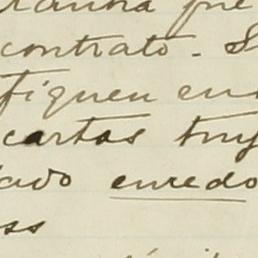 que
contrato. S
fiquen en
cartas tuy
ado enredo
ss